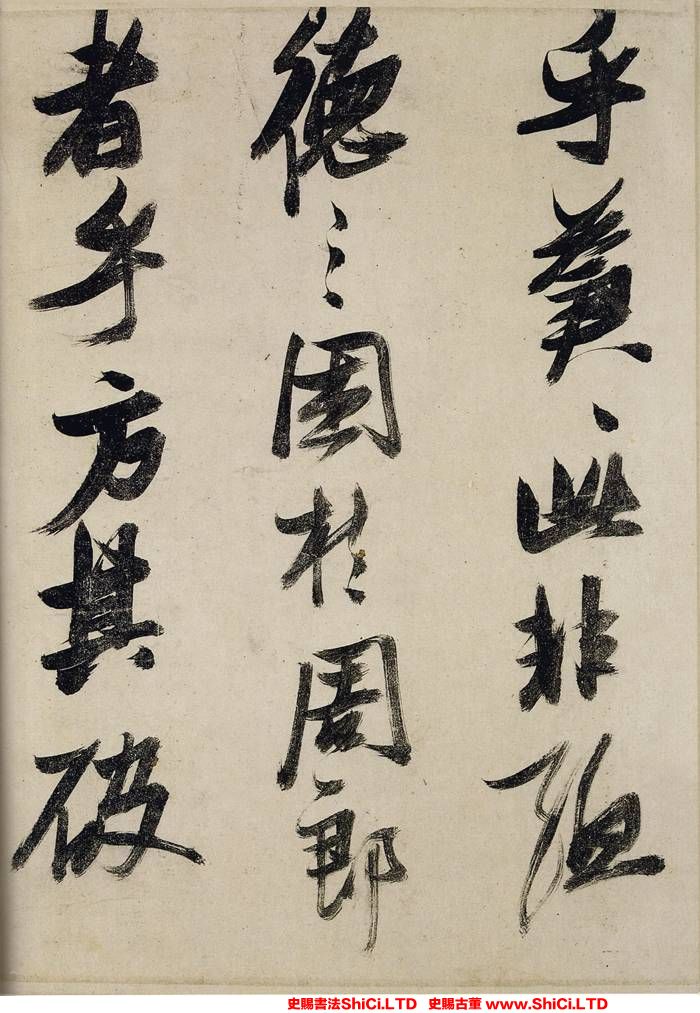 乎蒼、此非孟
德之困於周郎
者乎方其破
史賜書法ShiCi.LTD 史賜古董 www.ShiCi.LTD